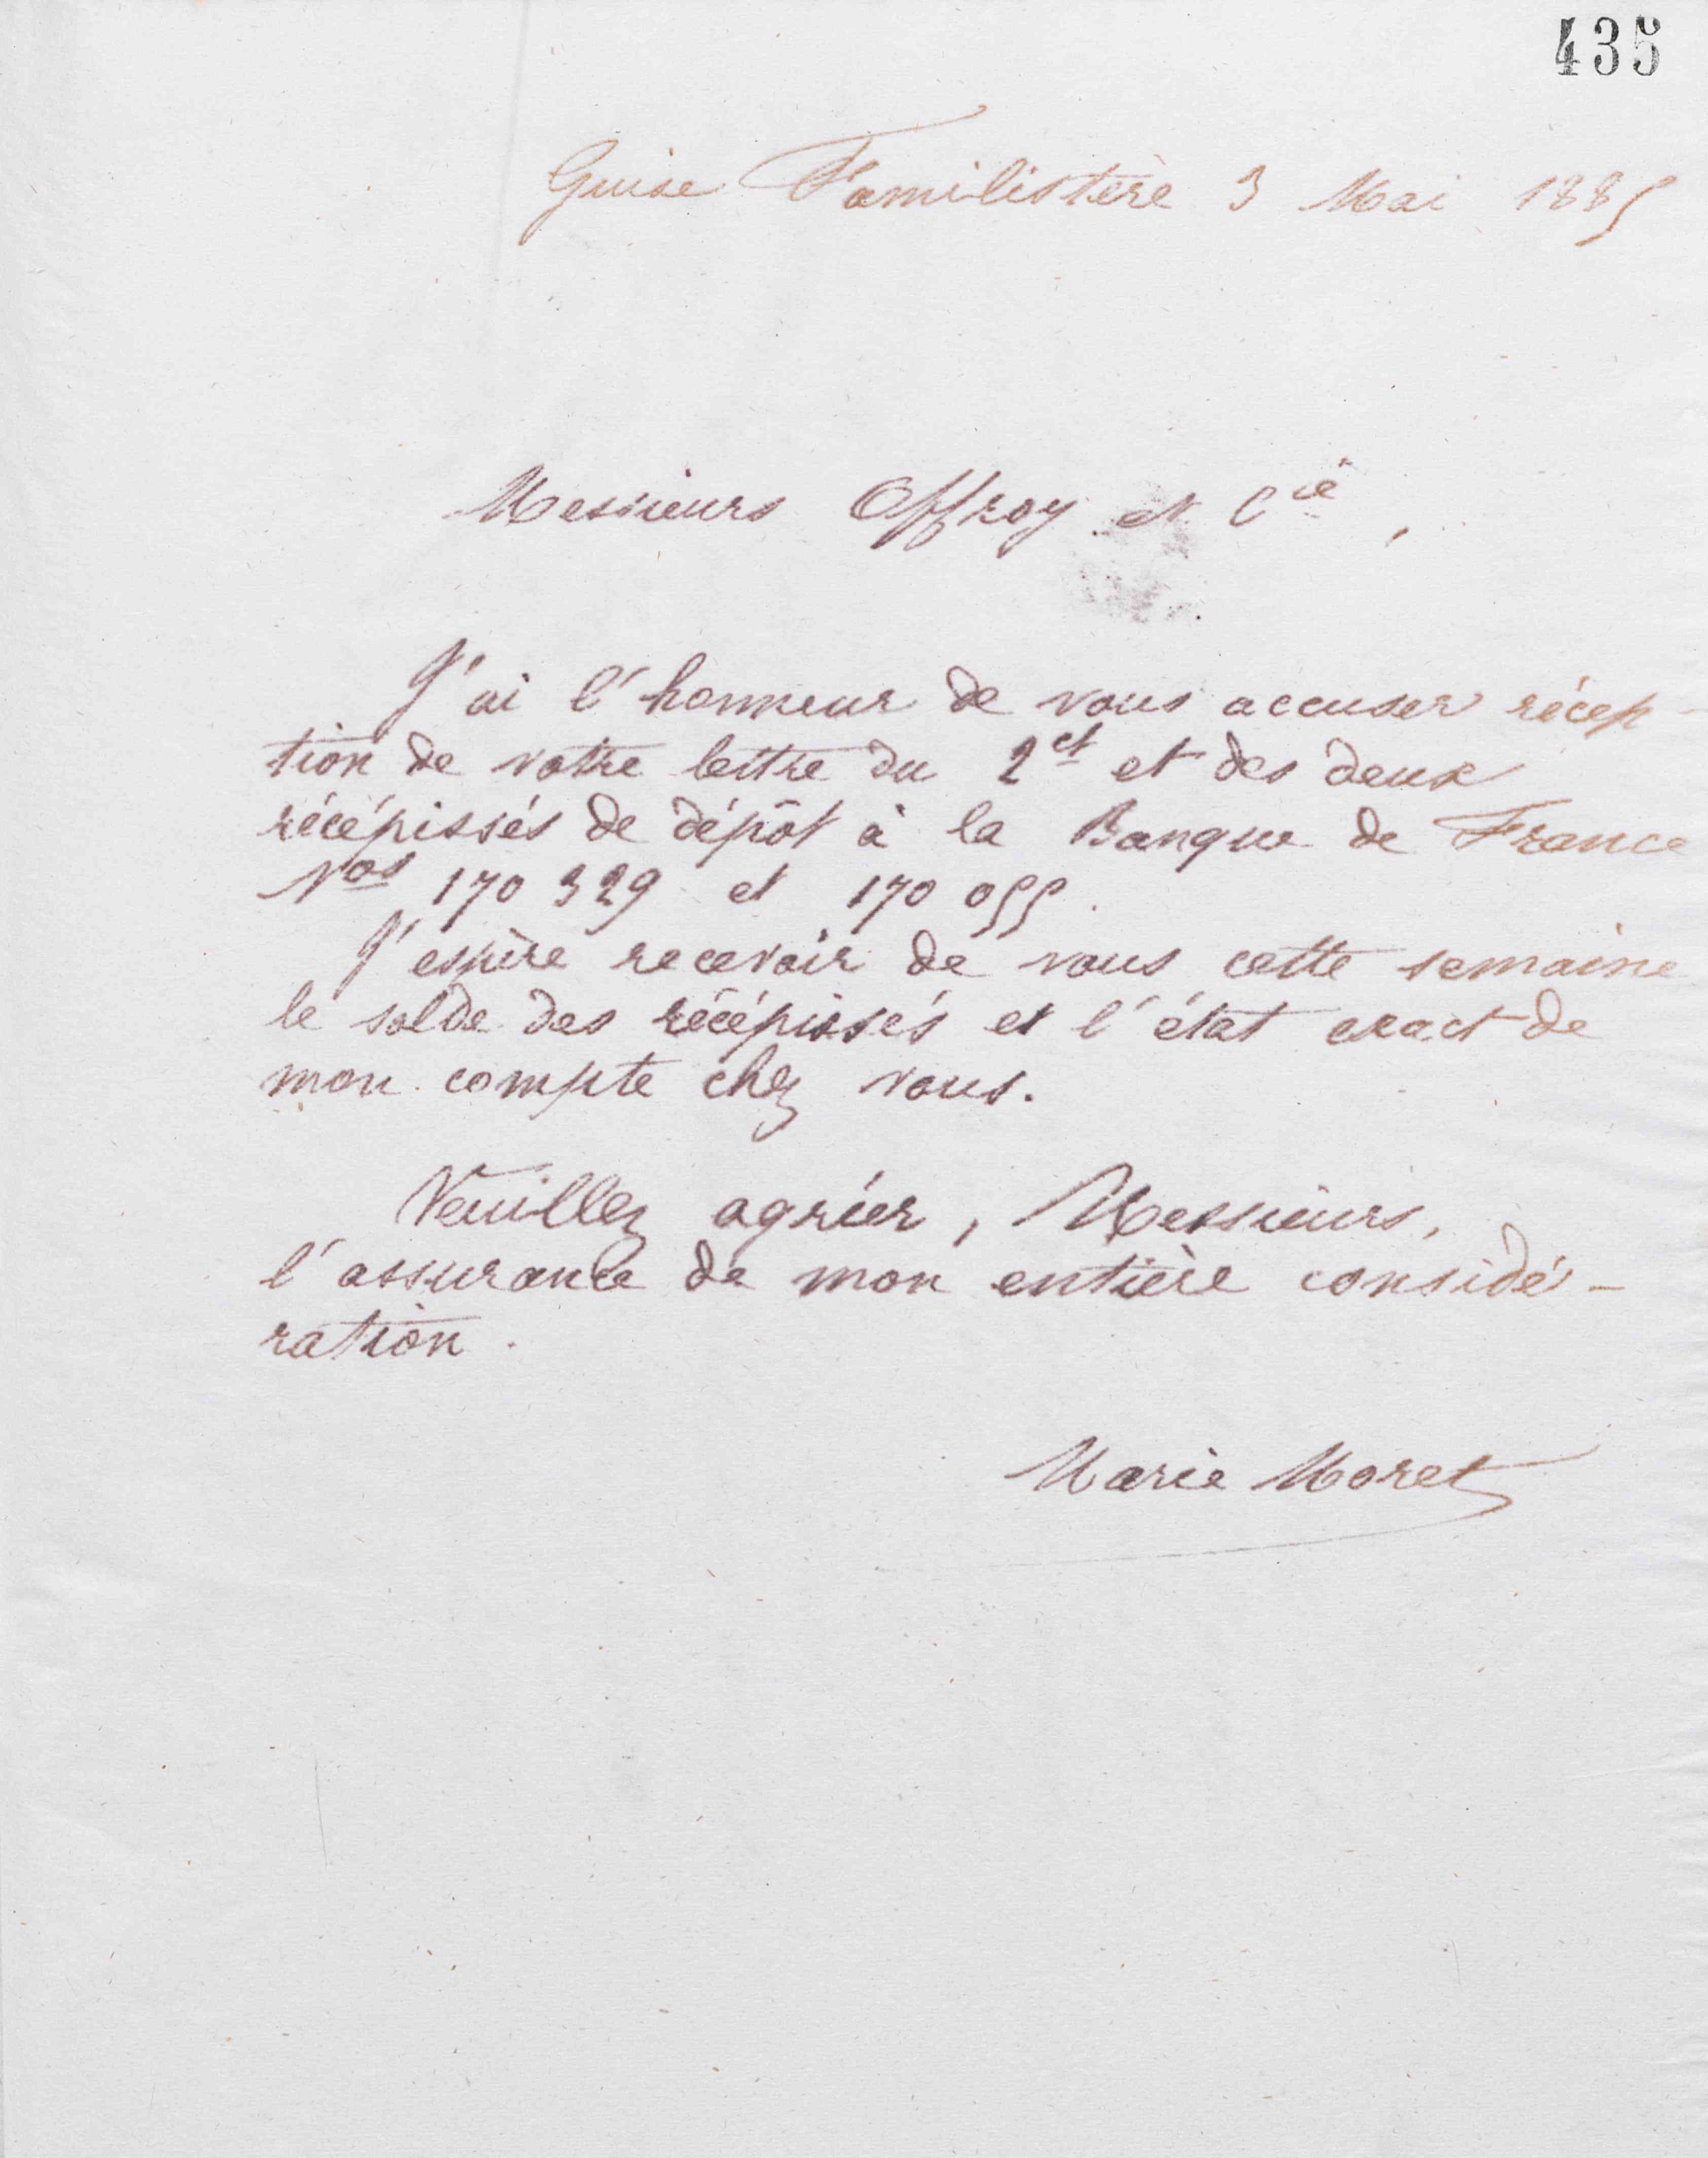 435
Guise Familistère 3 Mai 1885
Messieurs Offroy et Cie,
J'ai l'honneur de vous accuser récep-
tion de votre lettre du 2ct et des deux
récépissés de dépôt à la Banque de France
Nos 170 329 et 170 055.
J'espère recevoir de vous cette semaine
le solde des récépissés et l'état exact de
mon compte chez vous.
Veuillez agréer, Messieurs,
l'assurance de mon entière considé-
ration.
Marie Moret